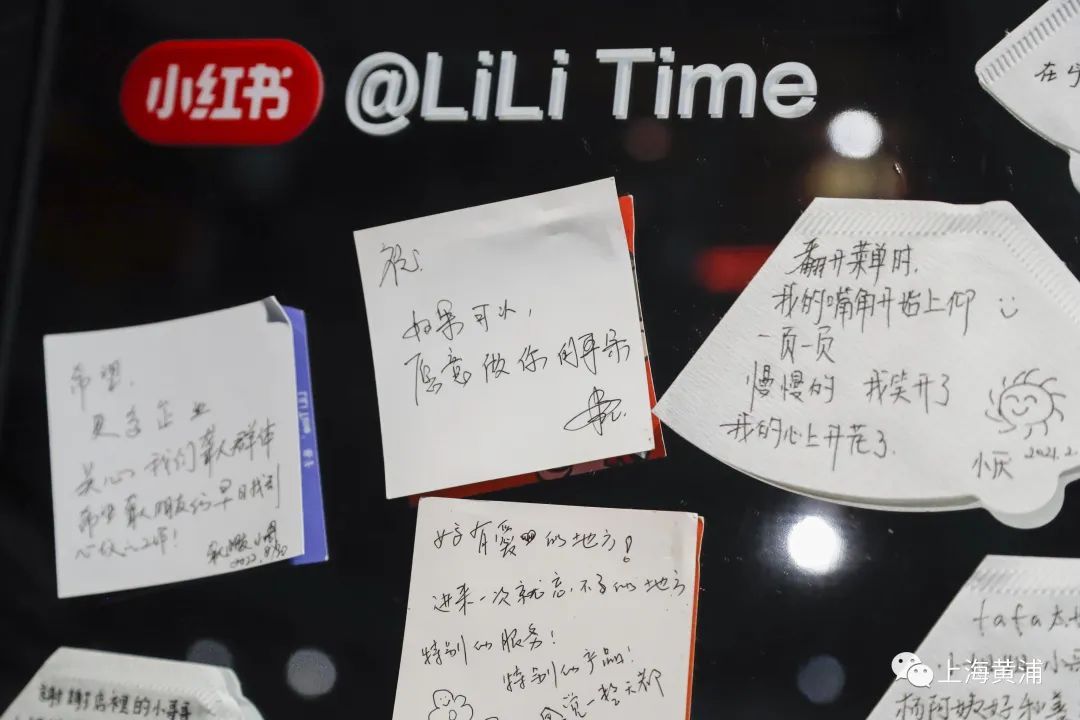 小红书 @LiLi Time
在乎
祝
如果可以,
愿意做你的耳朵
翻开菜单时,
我的嘴角开始上仰
一页一页
慢慢的 我笑开了
我的心上开花了.
小灰 2021.2.
希望,
更多企业
关心我们聋人群体
希望聋人朋友们早日找到
心仪工作!
2022.
好有爱的地方!
进来一次就忘不了的地方
特别的服务!
特别的产品!
店里的小哥哥
fafa
小哥
杨阿姨好和善
上海黄浦